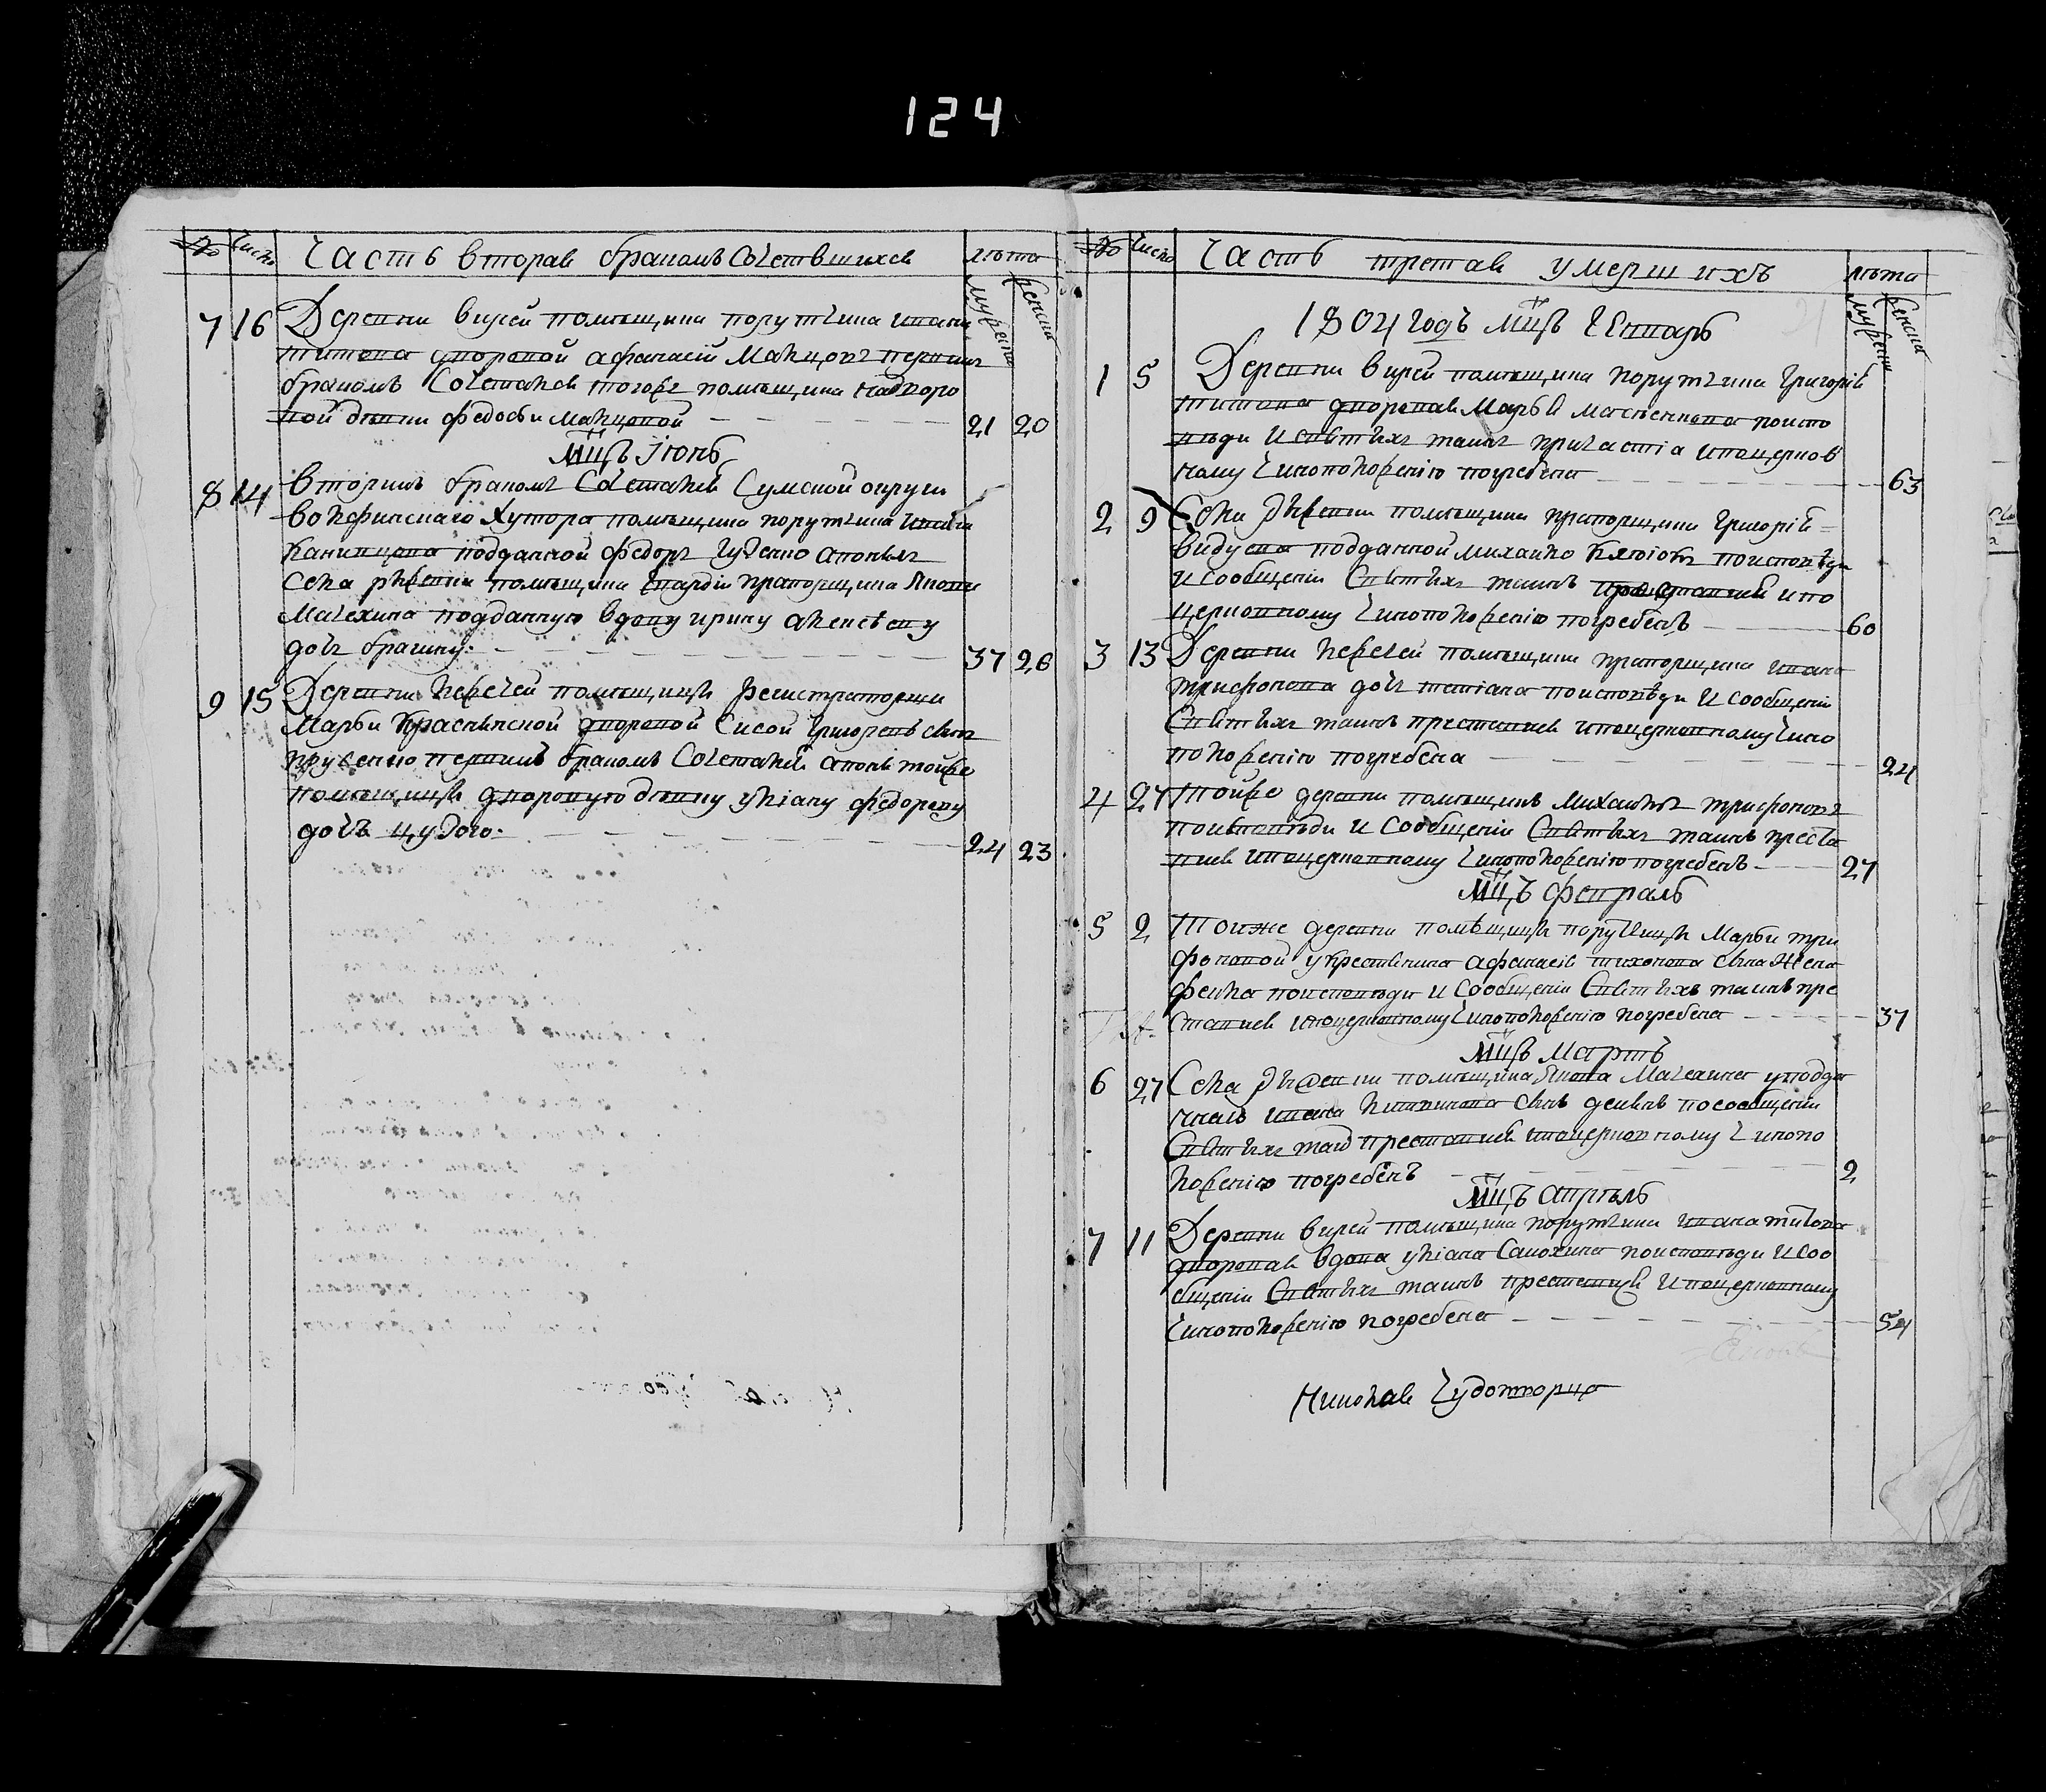 124
№ Число Часть вторая бракомъ Сочетвшихся лѣта
мужеска женска
7 16 Деревни вирей помѣщика порутчика ивана
титова дворовой афанасій Малцовъ первымъ
бракомъ Сочетался тогожъ помѣщика надворо
вой дѣвки федосьи Малцовой 21 20
Мцъ Іюнь
8 14 вторимъ бракомъ Сочетался Сумской округи
хутора помѣщика порутчика ивана
подданной федоръ апонялъ
Села помѣщика гвардіи прапорщика Якова
Мачехина подданную вдову ирину алексѣеву
дочь брагину 37 26
9 15 Деревни помѣщици регистраторши
Марьи дворовой Сисой Григорьевъ сынъ
первимъ бракомъ Сочетался апонялъ тойже
помѣщици дворовую дѣвку уліану федорову
дочъ 24 23
№ Число Часть третая умершихъ лѣта
мужеска женска
1804 годъ Мцъ Генварь
1 5 Деревни вирей помѣщика порутчика Григорія
титова дворовая Марья поиспо
вѣди и святыхъ таинъ причастіа ипоцерков
ному чиноположенію погребена 63
2 9 Села помѣщика прапорщика Григорія
подданной михайло поисповѣди
и сообщеніи Святыхъ таинъ преставися ипо
церковному чиноположенію погребенъ 60
3 13 Деревни помѣщика прапорщика ивана
трифонова дочь татіана поисповѣди и сообщеніи
Святыхъ таинъ преставися ипоцерковному чино
положенію погребена 24
4 27 Тойже деревни помѣщикъ Михаилъ трифоновъ
поисповѣди и сообщеніи Святыхъ таинъ преста
вися ипоцерковному чиноположенію погребенъ 27
Мцъ февраль
5 2 Тоиже деревни помѣщици порутчици Марьи три
фоновой укрестянина афанасія тихонова сына Жена
фекла поисповѣди и сообщеніи Святыхъ таинъ пре
ставися ипоцерковному чиноположенію погребена 37
Мцъ Мартъ
6 27 Села помѣщика Якова Мачехина уподда
ннаго ивана сынъ посообщеніи
Святыхъ таин преставися ипоцерковному чинопо
ложенію погребенъ 2
Мцъ апрѣль
7 11 Деревни вирей помѣщика порутчика ивана титова
дворовая вдова уліана Самохина поисповѣди и соо
бщеніи Святыхъ таинъ преставися и поцерковному
чиноположенію погребена 54
Николая Чудотворца